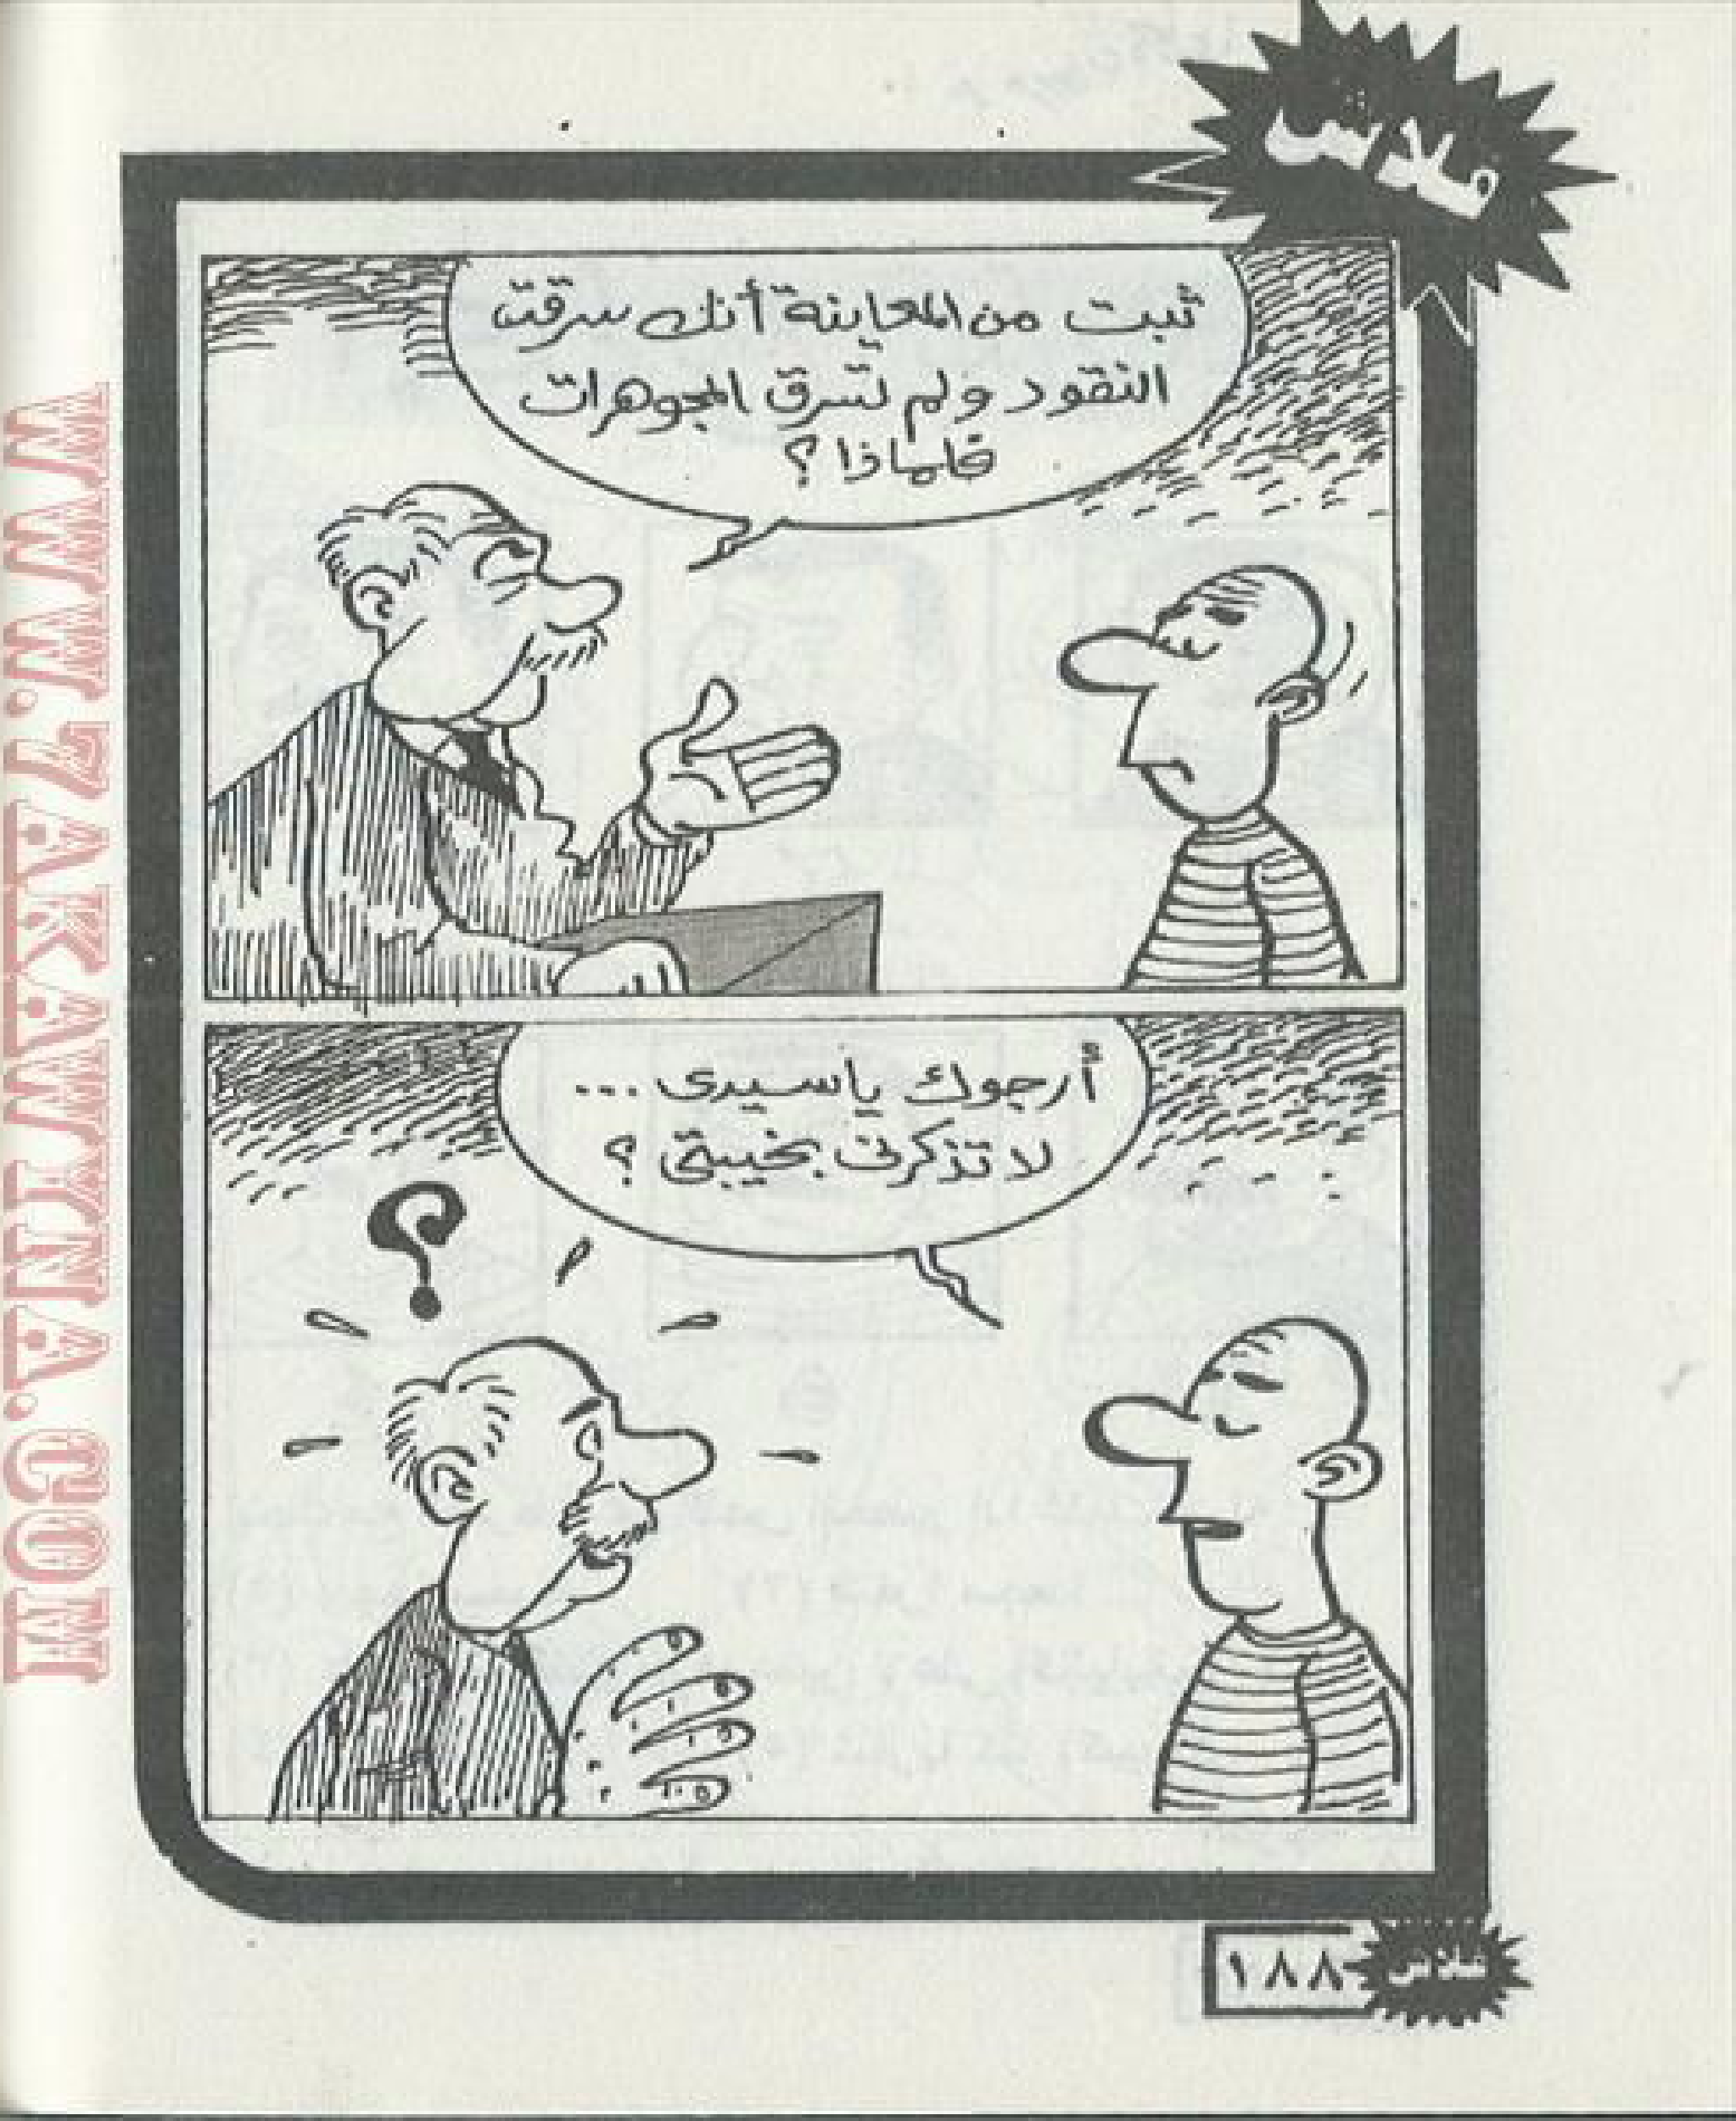 فلاش
ثبت من المعاينة أنك سرقت
النقود ولم تسرق المجوهرات
فلماذا؟
أرجوك ياسيدى ...
لا تذكرنى بخيبتى ؟
؟
١٨٨
فلاش
WWW.7AKAWINA.COM